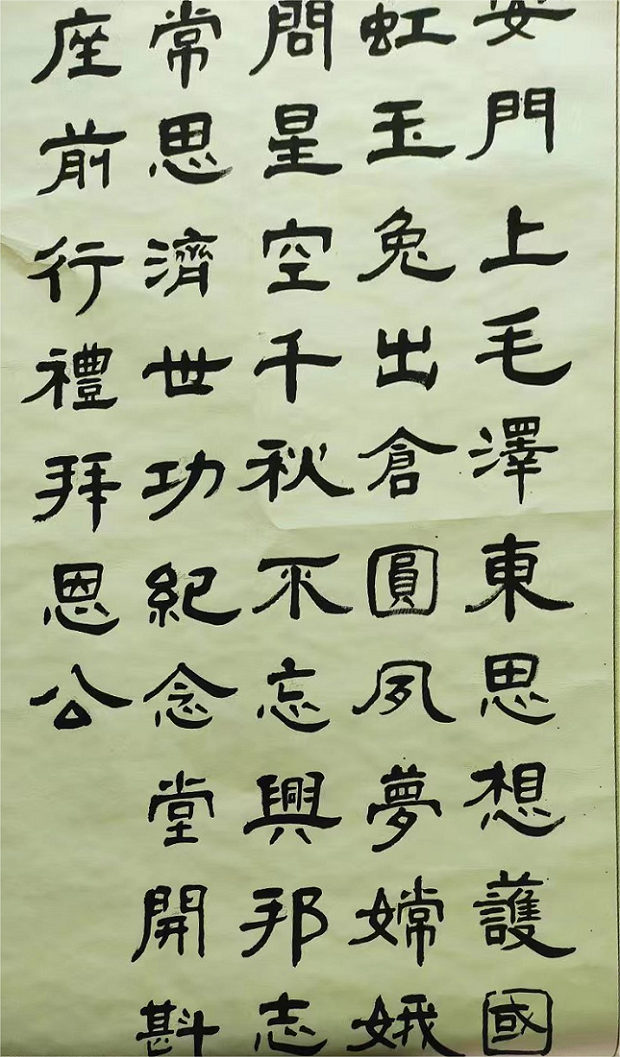 安門上毛澤東思想護國
虹玉兔出倉圓夙夢嫦娥
問星空千秋不忘興邦志
常思濟世功紀念堂開斟
座前行禮拜恩公